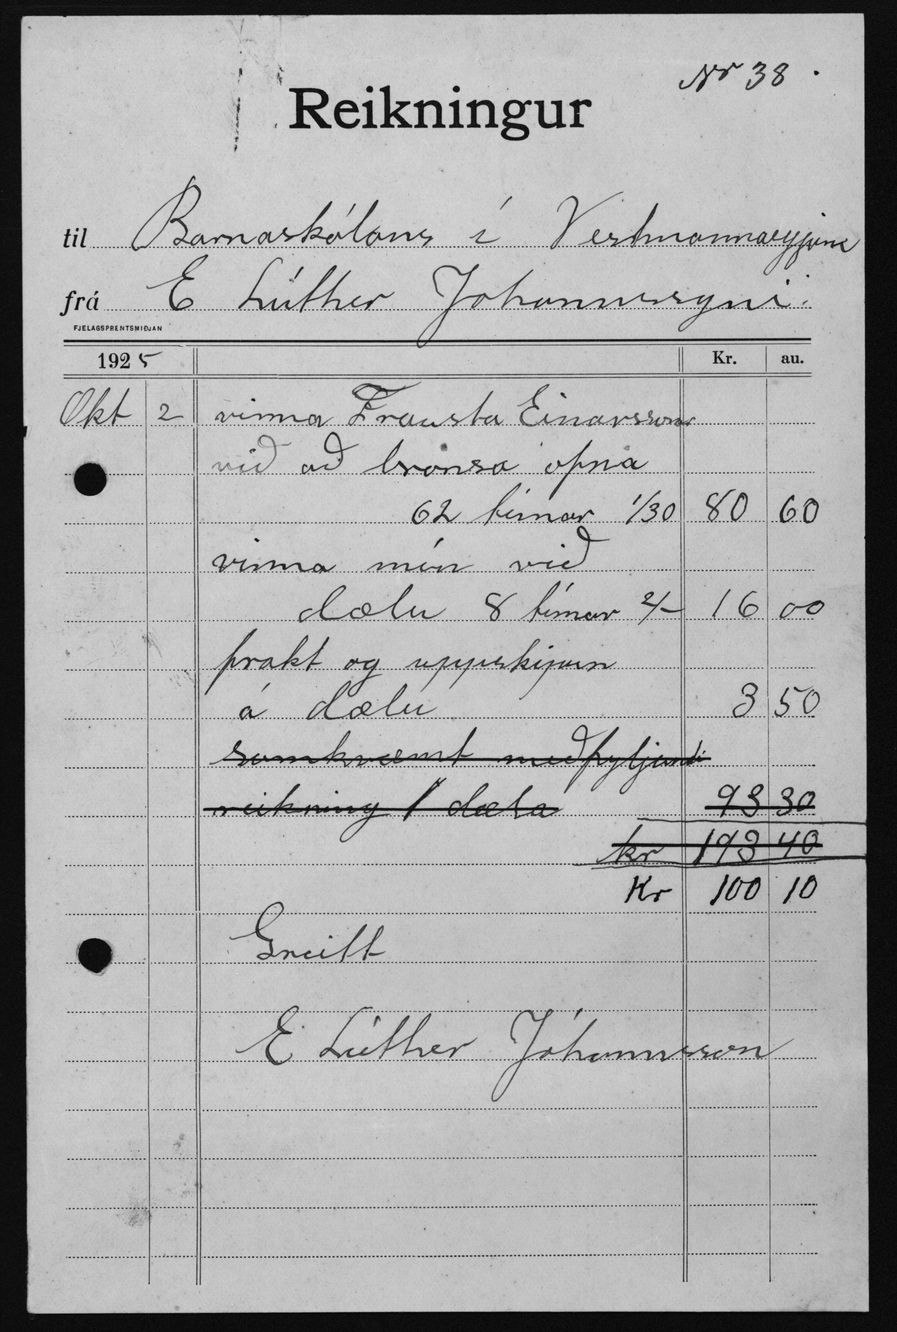 Nr 38.
Reikningur
til Barnaskólans í Vestmannaeyjum
frá E Lúther Jóhannessyni.
FJELAGSPRENTSMIÐJAN
1925 Kr. au.
Okt 2 vinna Trausta Einarssonar
við að bronsa ofna
62 tímar 1/30 80 60
vinna mín við
dælu 8 tímar 2/- 16 00
frakt og uppskipun
á dælu 3 50
samkvæmt meðfylgjandi
reikning 1 dæla 93 30
kr 193 40
Kr 100 10
Greitt
E Lúther Jóhannsson